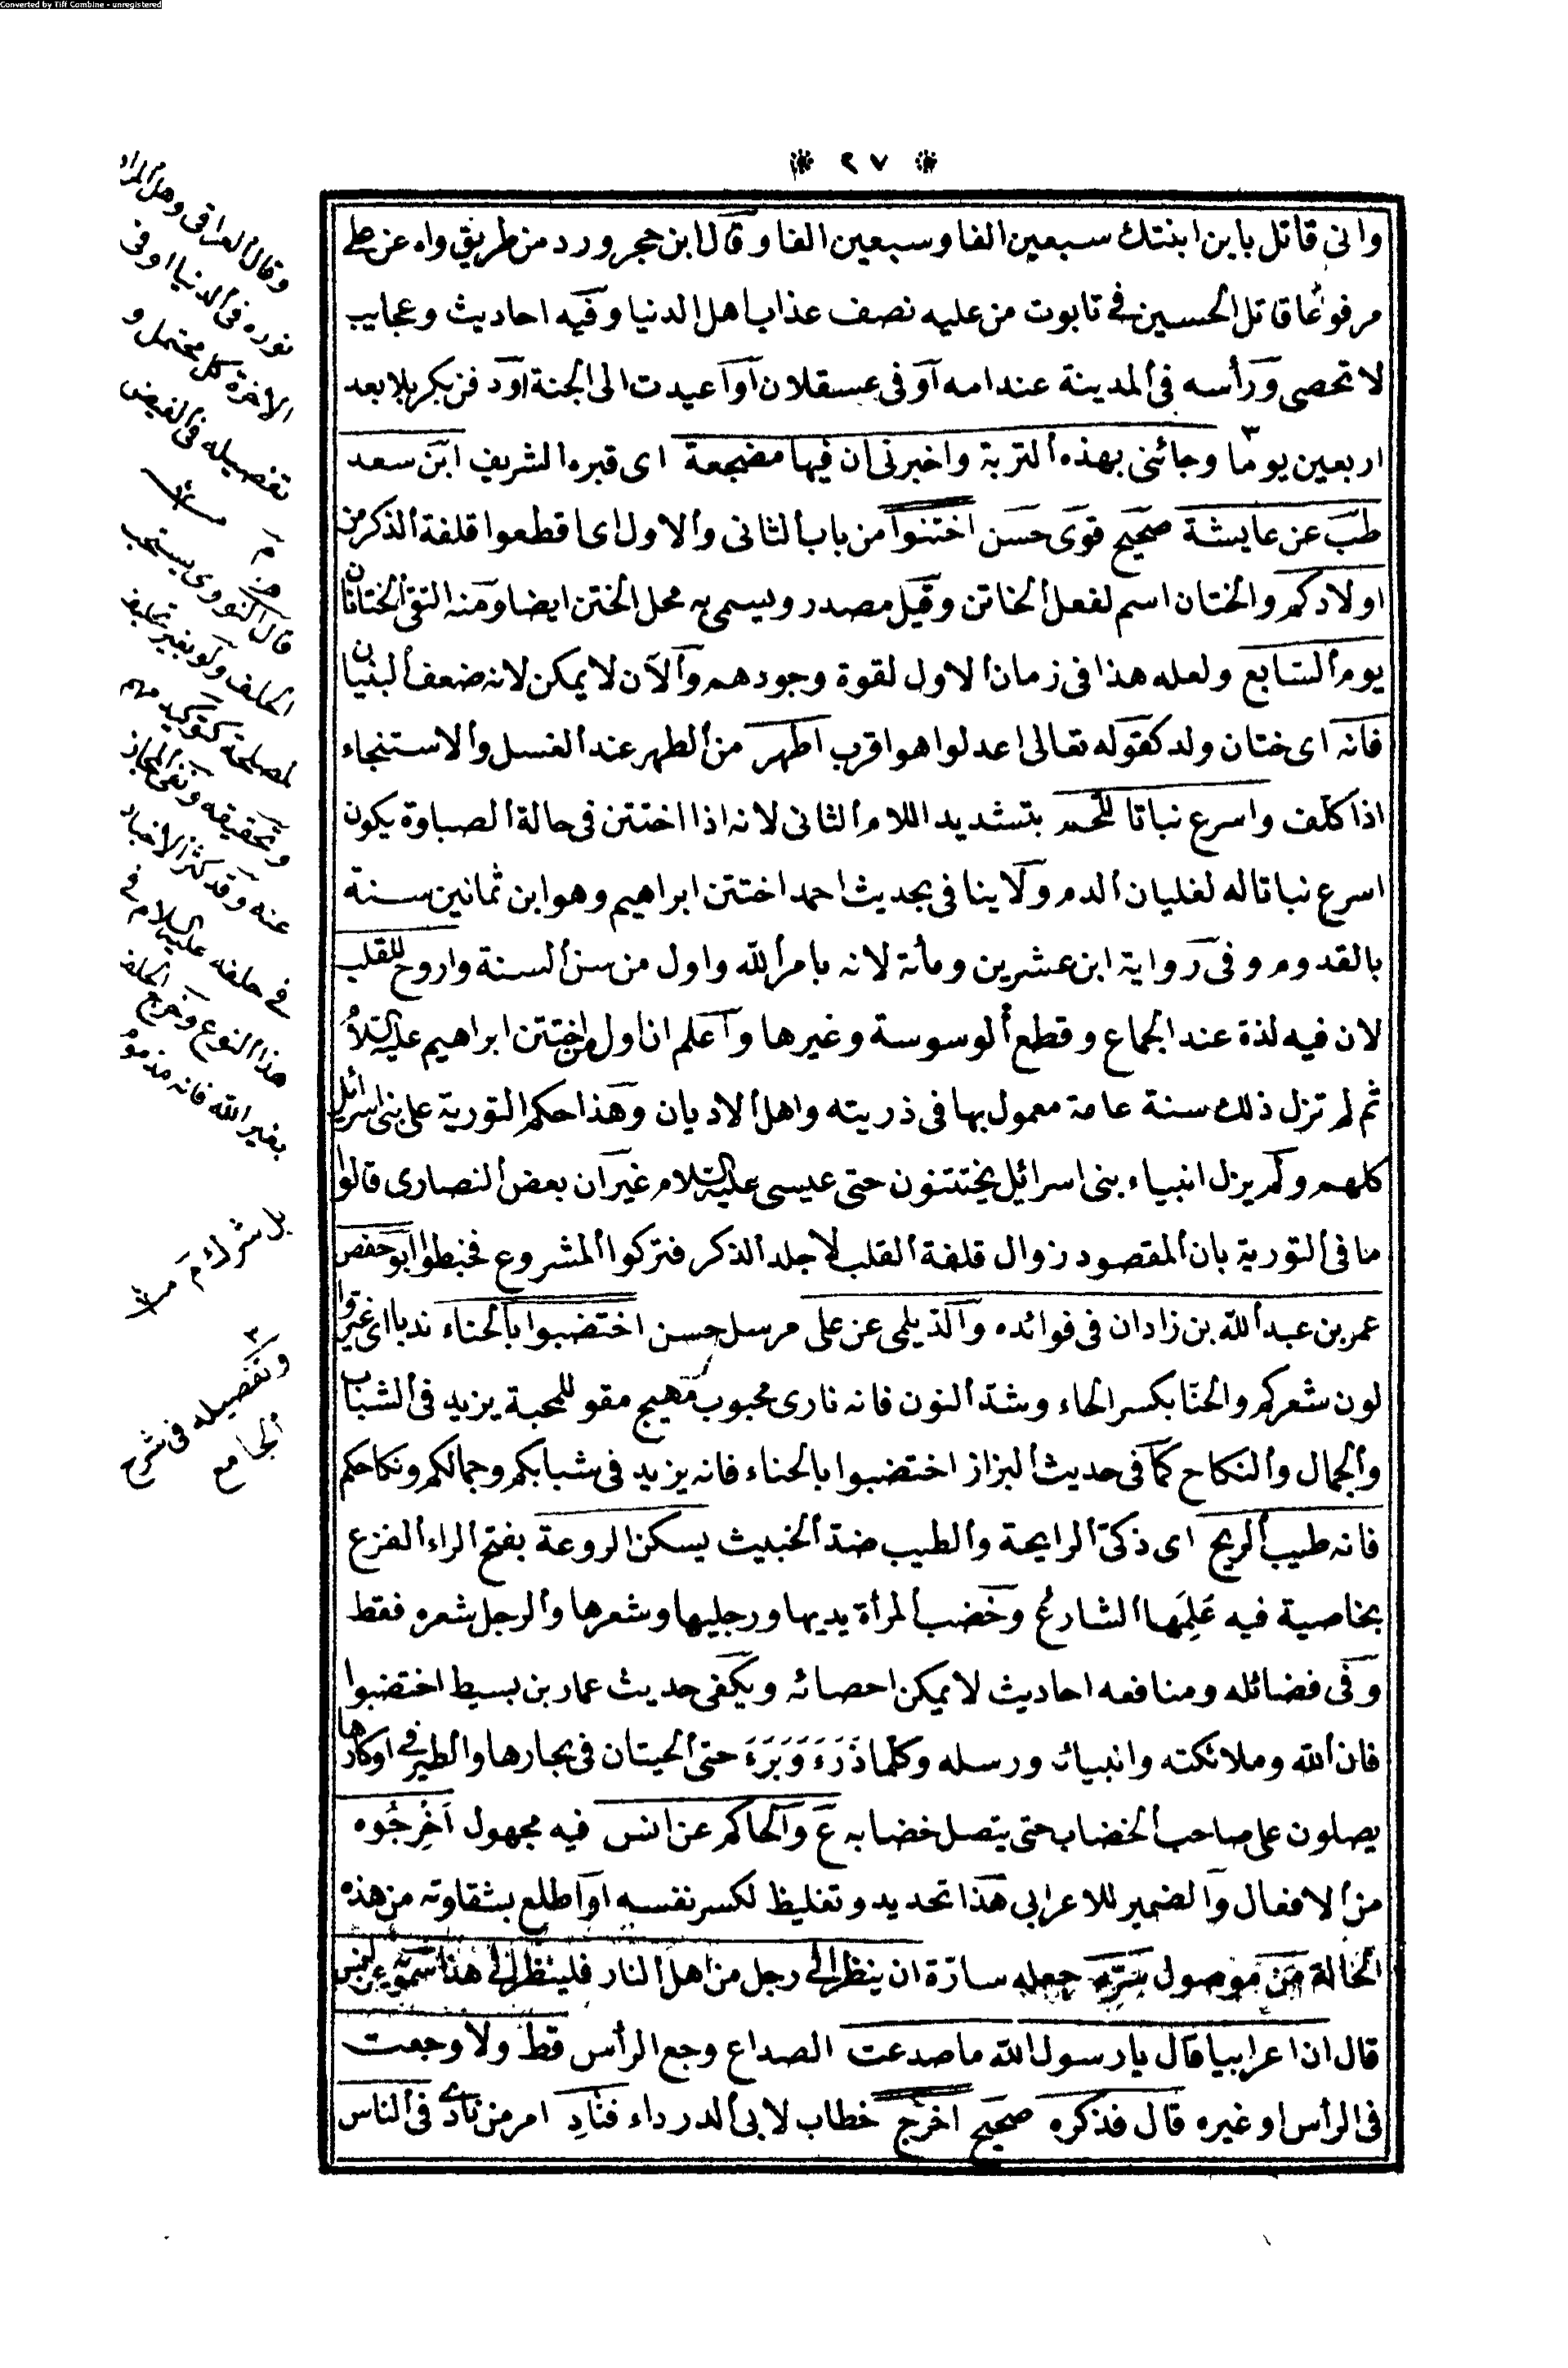 Converted by Tiff Combine - unregistered
❋ ٩٧ ❋
وانى قاتل باين ابنتك سبعين الفا وسبعين الفا وقال ابن حجر ورد من طريق واه عن على
مرفوعا قاتل الحسين فى تابوت من عليه نصف عذاب اهل الدنيا وفيه احاديث وعجايب
لا تحصى ورأسه فى المدينة عند امه او فى عسقلان او اعيدت الى الجنة اورد بكربلا بعد
اربعين يوما ٣ وجائنى بهذه التربة واخبرنى ان فيها مضجعة اى قبره الشريف ابن سعد
طب عن عايشة صحيح قوى حسن اختتنوا من باب الثانى والاول اى اقطعوا قلفة الذكر من
اولادكم والختان اسم لفعل الخاتن وقيل مصدر ويسمى به محل الختن ايضا ومنه التقى الختانان
يوم السابع ولعله هذا فى زمان الاول لقوة وجودهم والآن لا يمكن لانه ضعف البنيان
فانه اى ختان ولد كقوله تعالى اعدلوا هو اقرب اطهر من الطهر عند الغسل والاستنجاء
اذا كلف واسرع نباتا للحم بتشديد اللام الثانى لانه اذا اختتن فى حالة الصباوة يكون
اسرع نباتا له لغليان الدم ولا ينافى بحديث احمد اختتن ابراهيم وهو ابن ثمانين سنة
بالقدوم وفى رواية ابن عشرين ومأة لانه بامر الله واول من سن السنة واروح للقلب
لان فيه لذة عند الجماع وقطع الوسوسة وغيرها واعلم ان اول من اختتن ابراهيم عليه السلام
ثم لم تزل ذلك سنة عامة معمول بها فى ذريته واهل الاديان وهذا حكم التورية على بنى اسرائيل
كلهم ولم يزل انبياء بنى اسرائيل يختتنون حتى عيسى عليه السلام غير ان بعض النصارى قالوا
ما فى التورية بان المقصود زوال قلفة القلب لا جلد الذكر فتركوا المشروع فخبطوا ابو حفص
عمر بن عبد الله بن زادان فى فوائده والديلمى عن على مرسل حسن اختضبوا بالحناء ندبا اى غيروا
لون شعركم والحنا بكسر الحاء وشد النون فانه نارى محبوب مهيج مقو للمحبة يزيد فى الشباب
والجمال والنكاح كما فى حديث البزاز اختضبوا بالحناء فانه يزيد فى شبابكم وجمالكم ونكاحكم
فانه طيب الريح اى ذكى الرايحة والطيب ضد الخبيث يسكن الروعة بفتح الراء الفزع
بخاصية فيه عَلِمَها الشارعُ وخضب المرأة يديها ورجليها وشعرها والرجل شعره فقط
وفى فضائله ومنافعه احاديث لا يمكن احصائه ويكفى حديث عمار بن بسيط اختضبوا
فان الله وملائكته وانبيائه ورسله وكلما ذَرَءَ وَبَرَءَ حتى الحيتان فى بحارها والطير فى اوكارها
يصلون على صاحب الخضاب حتى يتصل خضابه ع والحاكم عن انس فيه مجهول اَخْرِجُوه
من الافعال والضمير للاعرابى هذا تحديد وتغليظ لكسر نفسه او اطلع بشقاوته من هذه
الحالة من موصول سَرّه جعله سارّة ان ينظر الى رجل من اهل النار فلينظر الى هذا
قال ان اعرابيا قال يا رسول الله ما صدعت الصداع وجع الرأس قط ولا وجعت
فى الرأس او غيره قال فذكره صحيح اخرج خطاب لابى الدرداء فنادِ امر من نادى فى الناس
وقال العراقى وهل المراد
نوره فى الدنيا او فى
الآخرة كل محتمل و
تفصيله فى الفيض
م
قال النووى يستحب
الحلف ولو بغير تحليف
لمصلحة كتوكيد مهم
وتحقيقه ونفى المجاز
عنه وقد كثر الاخبار
فى حلفه عليه السلام فى
هذا النوع وخرج الحلف
بغير الله فانه مذموم
بل شرك م
٣
وتفصيله فى شرح
الجامع